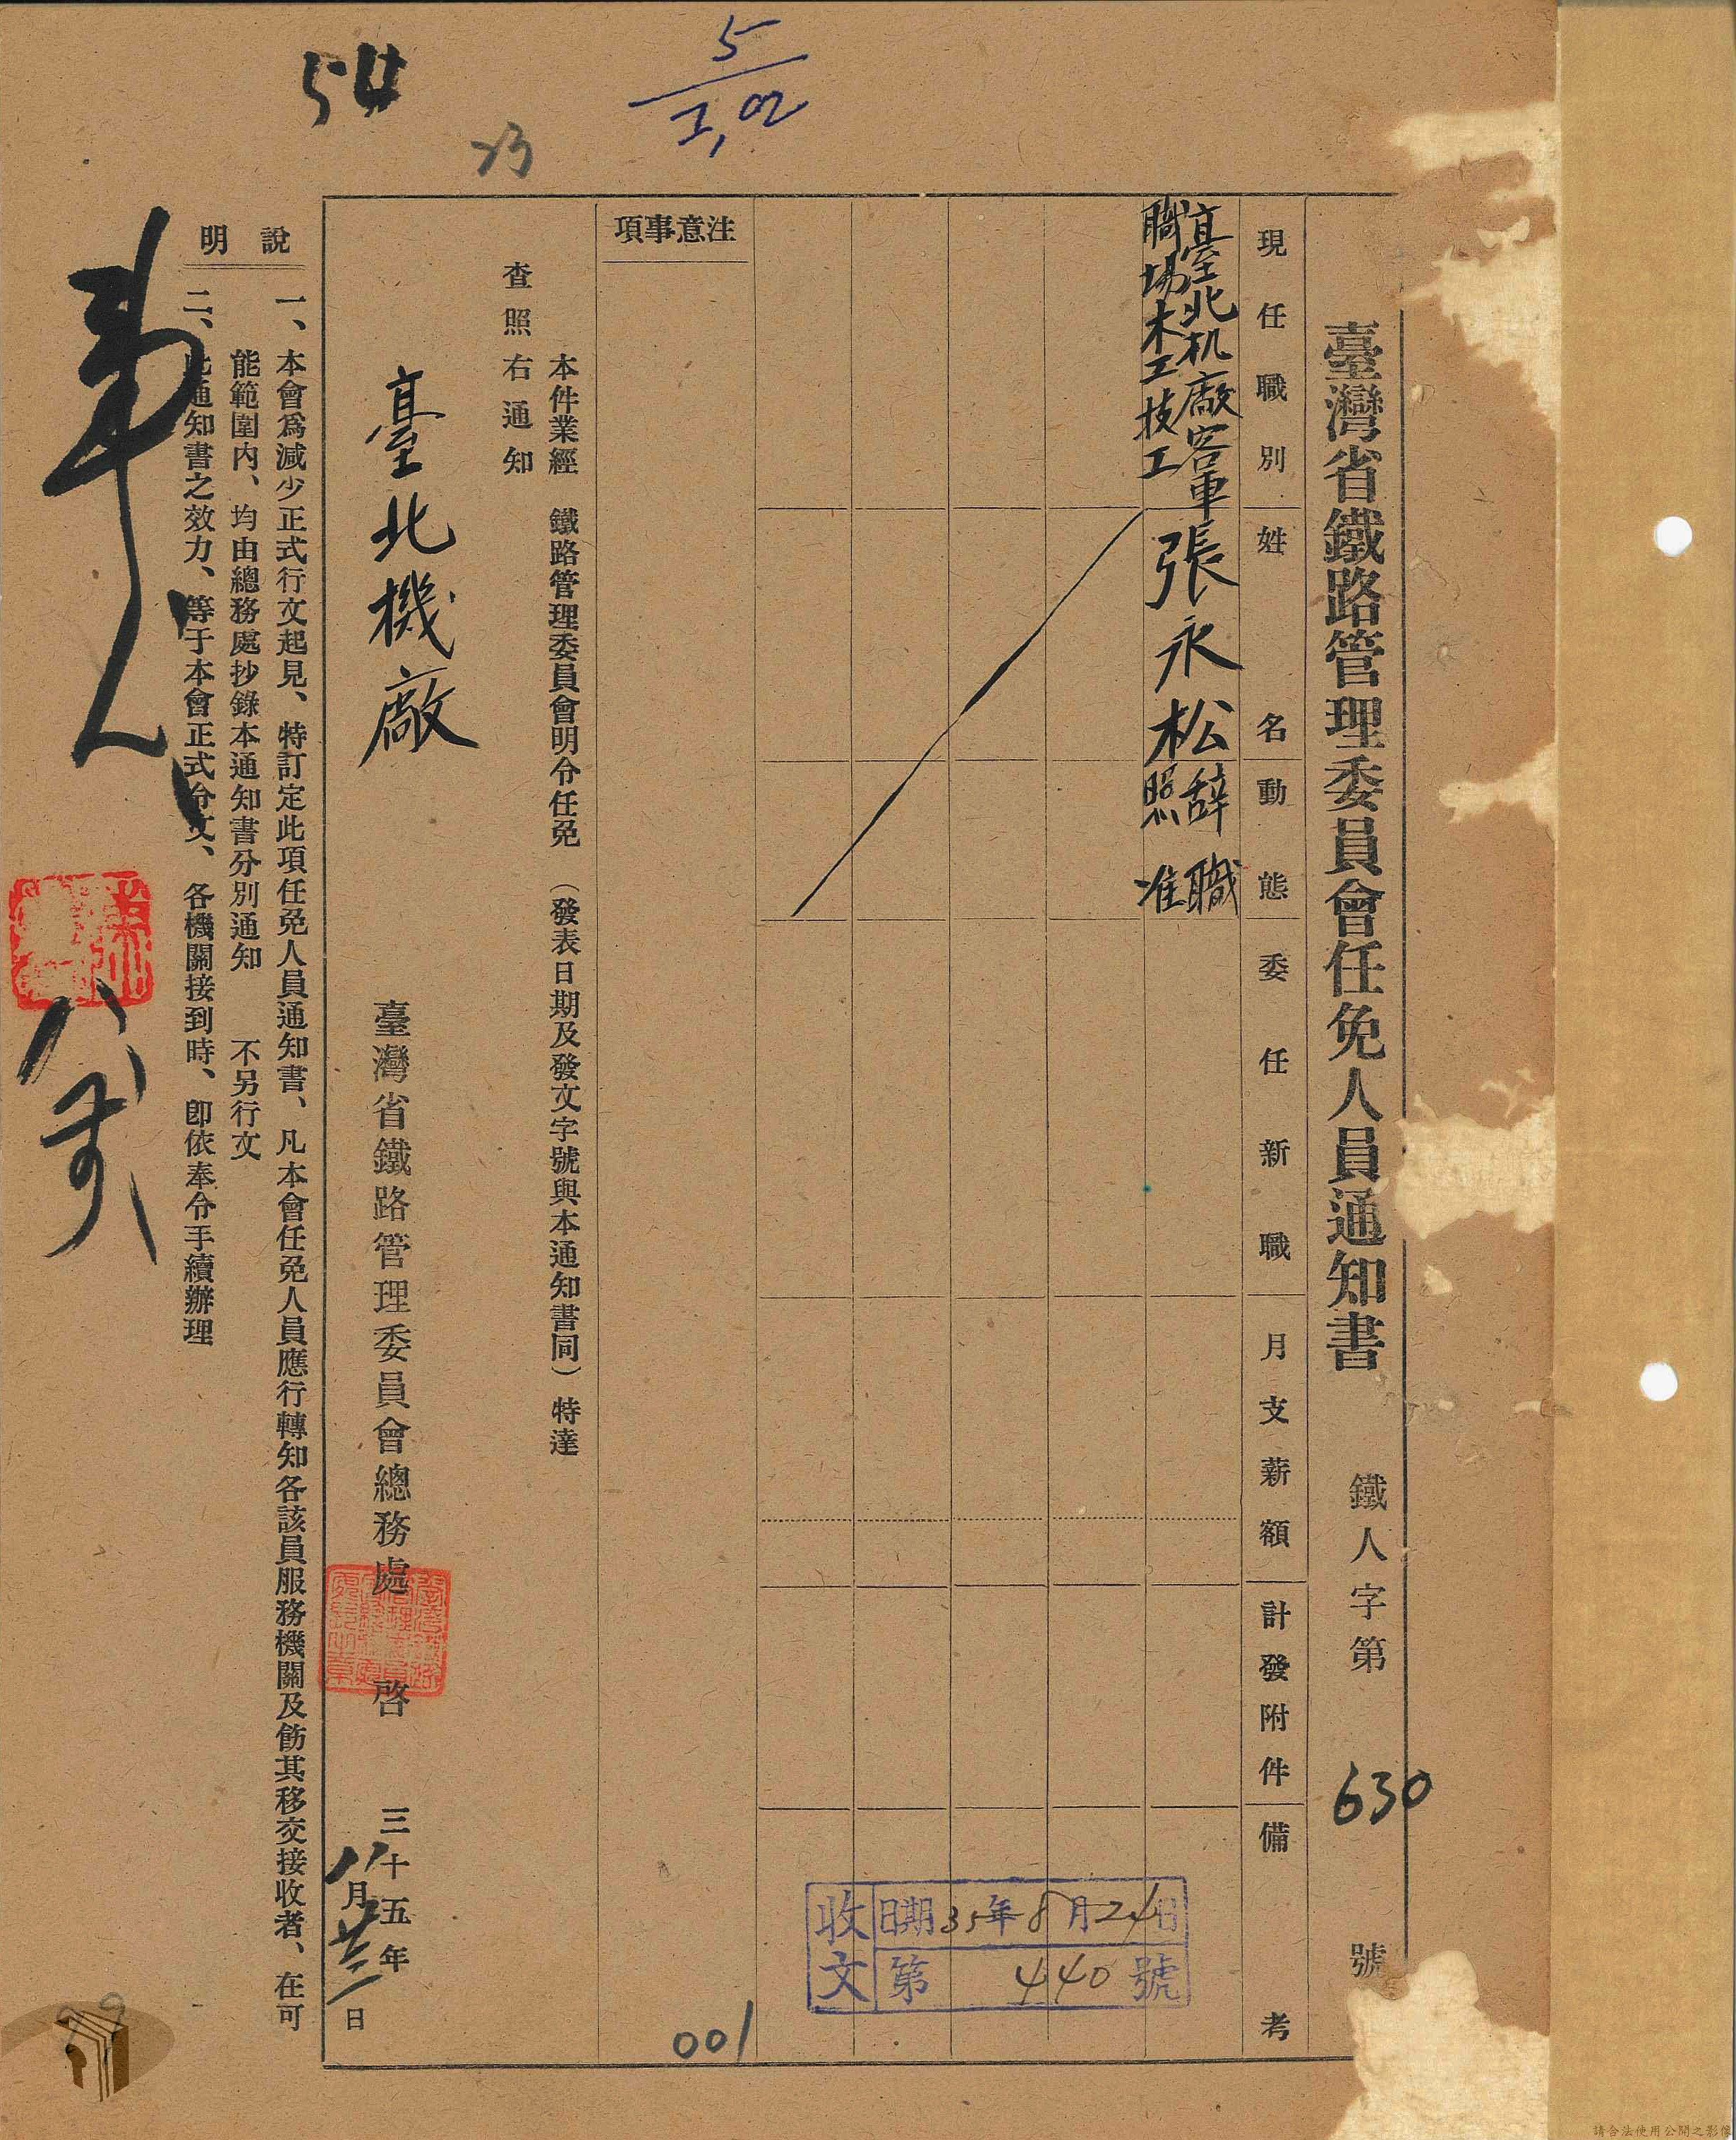 臺灣省鐵路管理委員會任免人員通知書 鐵人字第 630 號
現任職別 姓名 動態 委任新職 月支薪額 計發附件 備考
臺北机廠客車
職場木工技工
張永松
辭職
照准
注意事項
本件業經 鐵路管理委員會明令任免 (發表日期及發文字號與本通知書同) 特達
查照右通知
臺北機廠
臺灣省鐵路管理委員會總務處 啓 三十五年
八月廿三日
說明
一、本會爲減少正式行文起見、特訂定此項任免人員通知書、凡本會任免人員應行轉知各該員服務機關及飭其移交接收者、在可
能範圍內、均由總務處抄錄本通知書分別通知 不另行文
二、此通知書之效力、等于本會正式公文、各機關接到時、卽依奉令手續辦理
收文
日期35年8月24日
第 440 號
001
54
23
5
99
請合法使用公開之影像